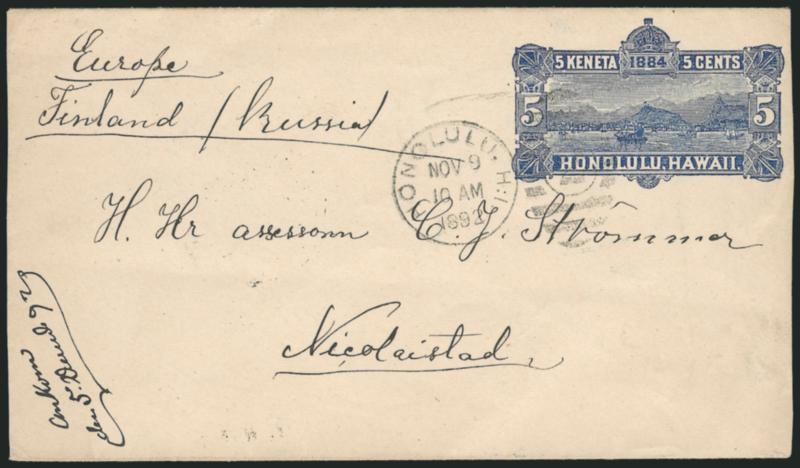 Europe
Finland / Russia
5 KENETA 1884 5 CENTS
5 5
HONOLULU, HAWAII.
HONOLULU. H.I.
NOV 9
10 AM
1892
H. Hr assessorn C. J. Strömmer
Nicolaistad
Ankom
den 5. Decemb 92